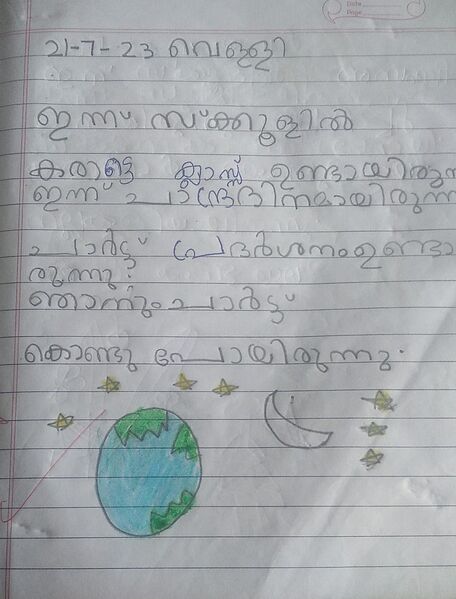 Date
Page
21-7-23 വെള്ളി
ഇന്ന് സ്ക്കൂളിൽ
കരാട്ടെ ക്ലാസ്സ് ഉണ്ടായിരുന
ഇന്ന് ചാന്ദ്രദിനമായിരുന
ചാർട്ട് പ്രദർശനംഉണ്ടാ
രുന്നു?
ഞാനും ചാർട്ട്
കൊണ്ടു പോയിരുന്നു.